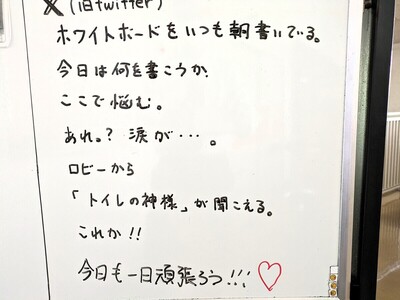 X (旧twitter)
ホワイトボードをいつも朝書いている。
今日は何を書こうか
ここで悩む。
あれ。？涙が・・・。
ロビーから
「トイレの神様」が聞こえる。
これか!!
今日も一日頑張ろう!!!♡